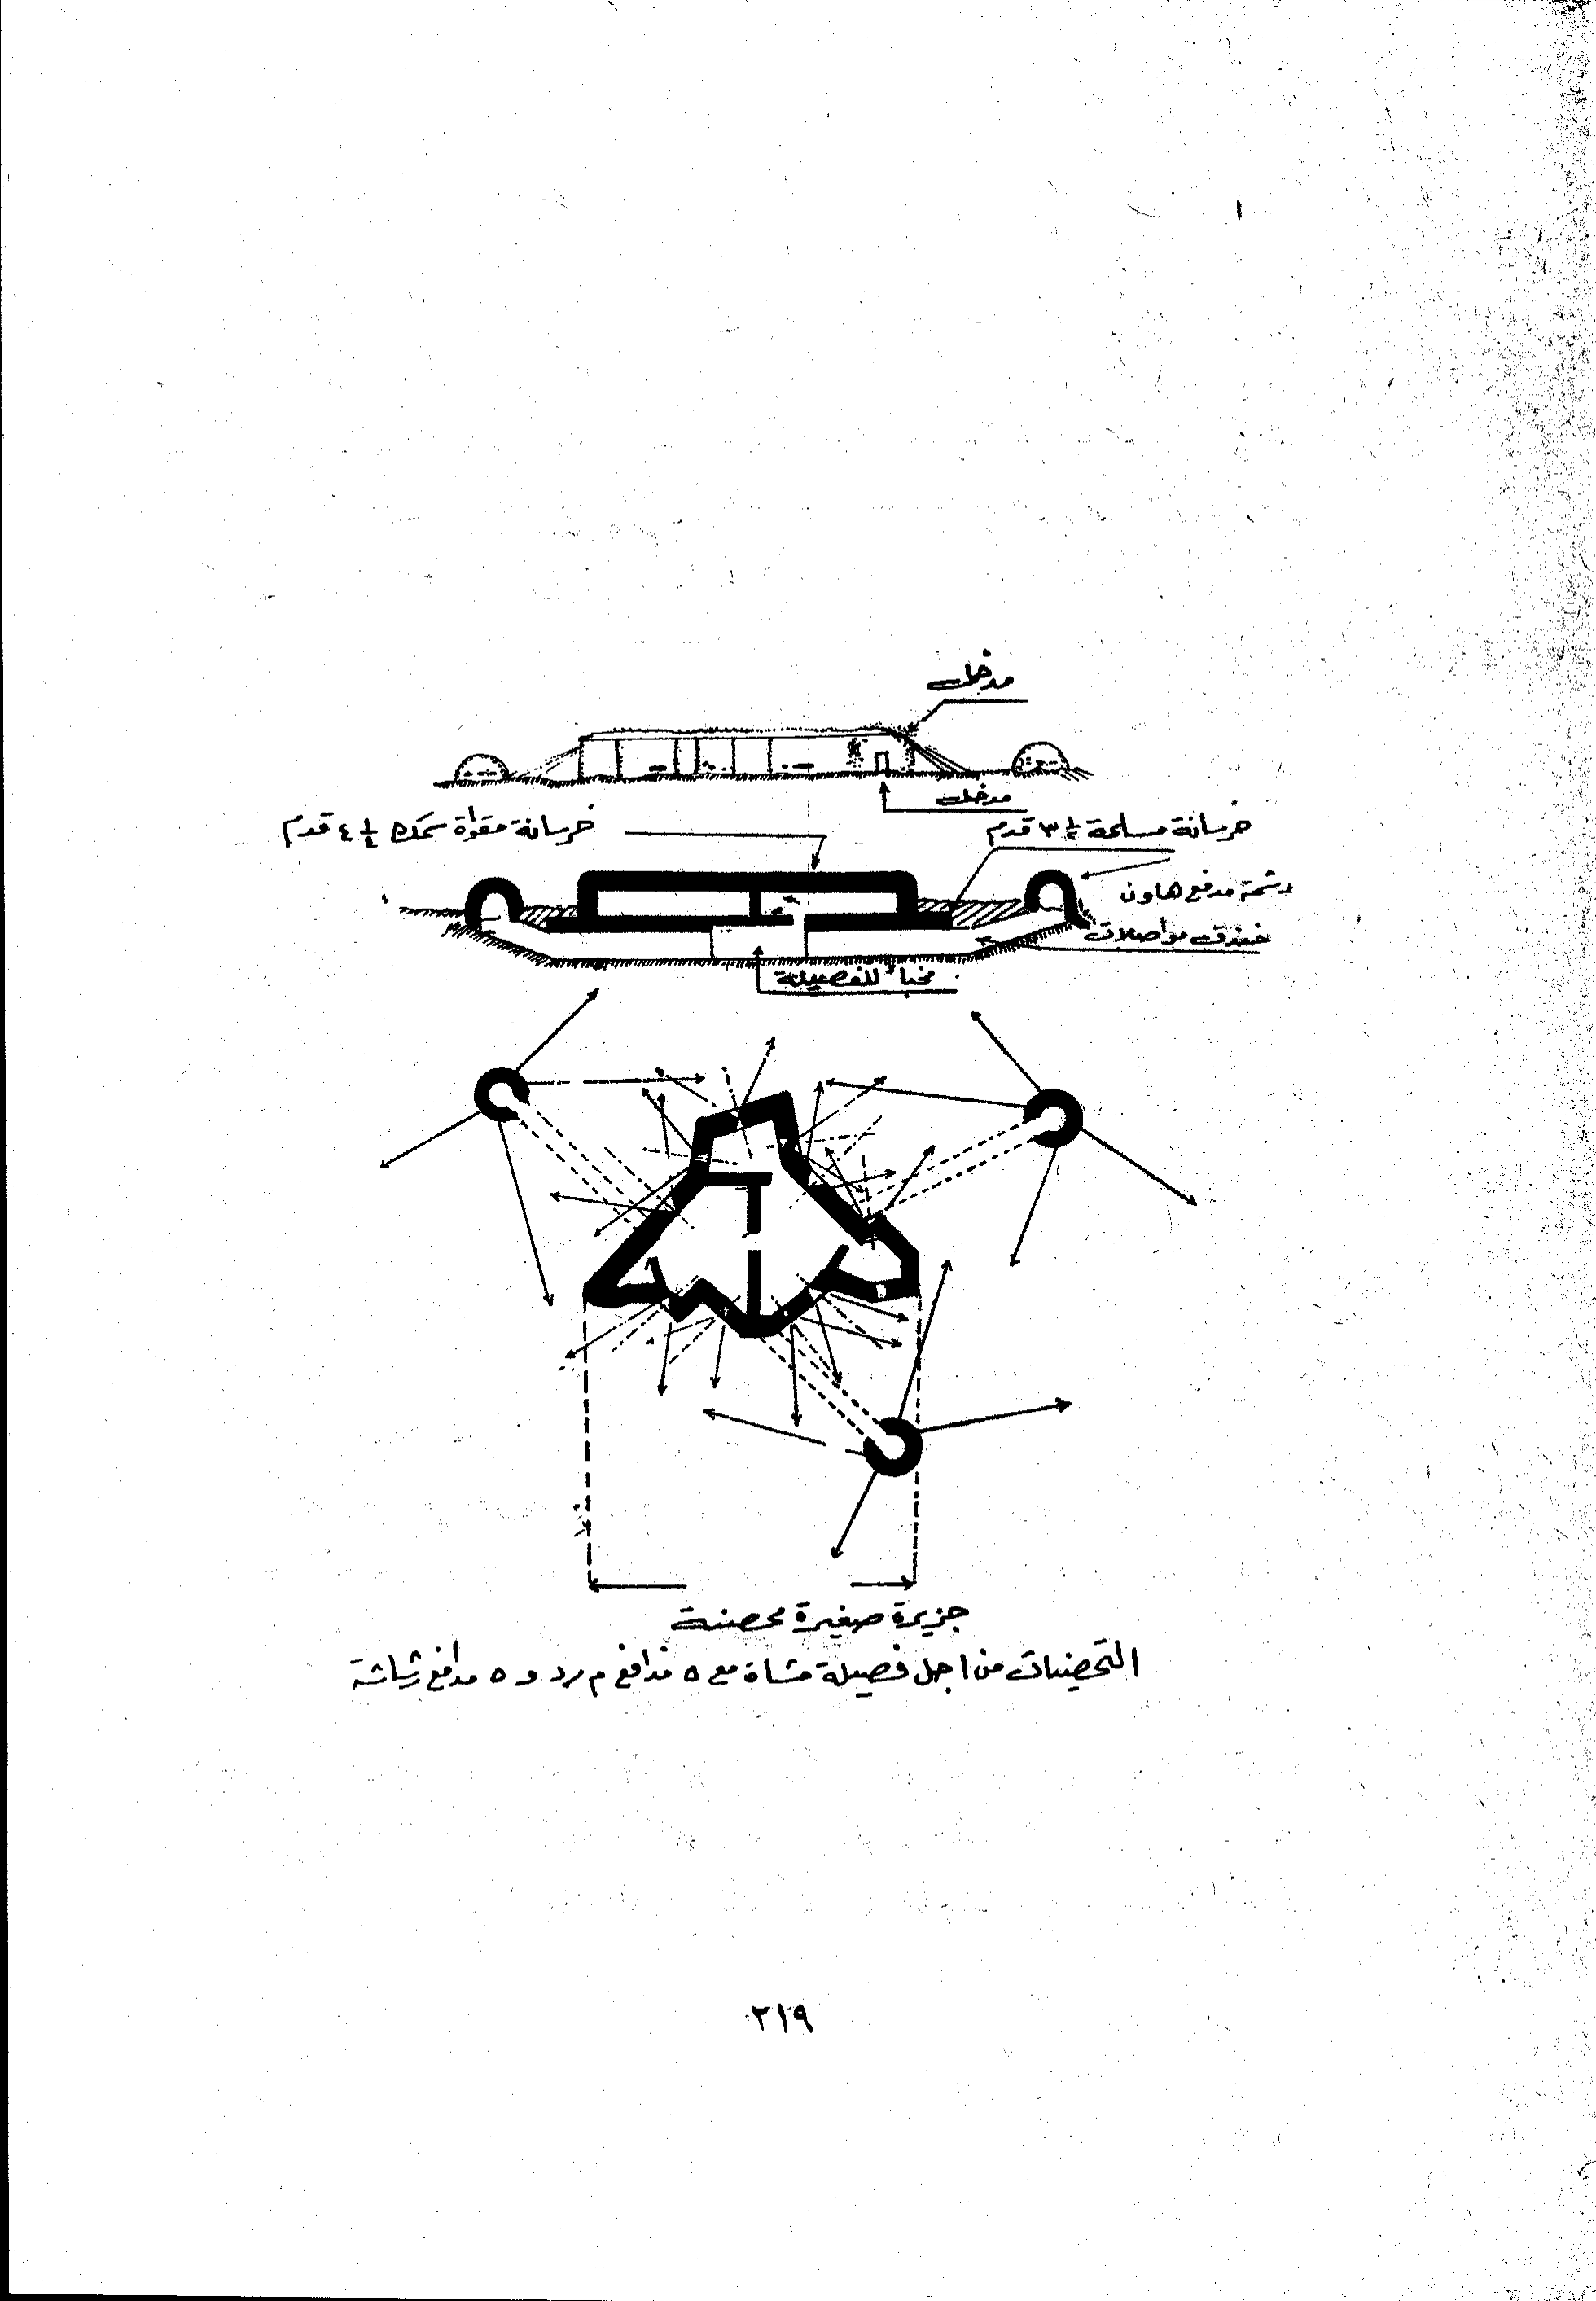 مدخل
مدخل
خرسانة مسلحة ٣ ١/٢ قدم
خرسانة مقواة سمك ٤ ١/٤ قدم
دشمة مدفع هاون
خندق مواصلات
مخبأ للفصيلة
جزيرة صغيرة محصنة
التحصينات من اجل فصيلة مشاة مع ٥ مدافع م رد و ٥ مدافع رشاشة
٢١٩